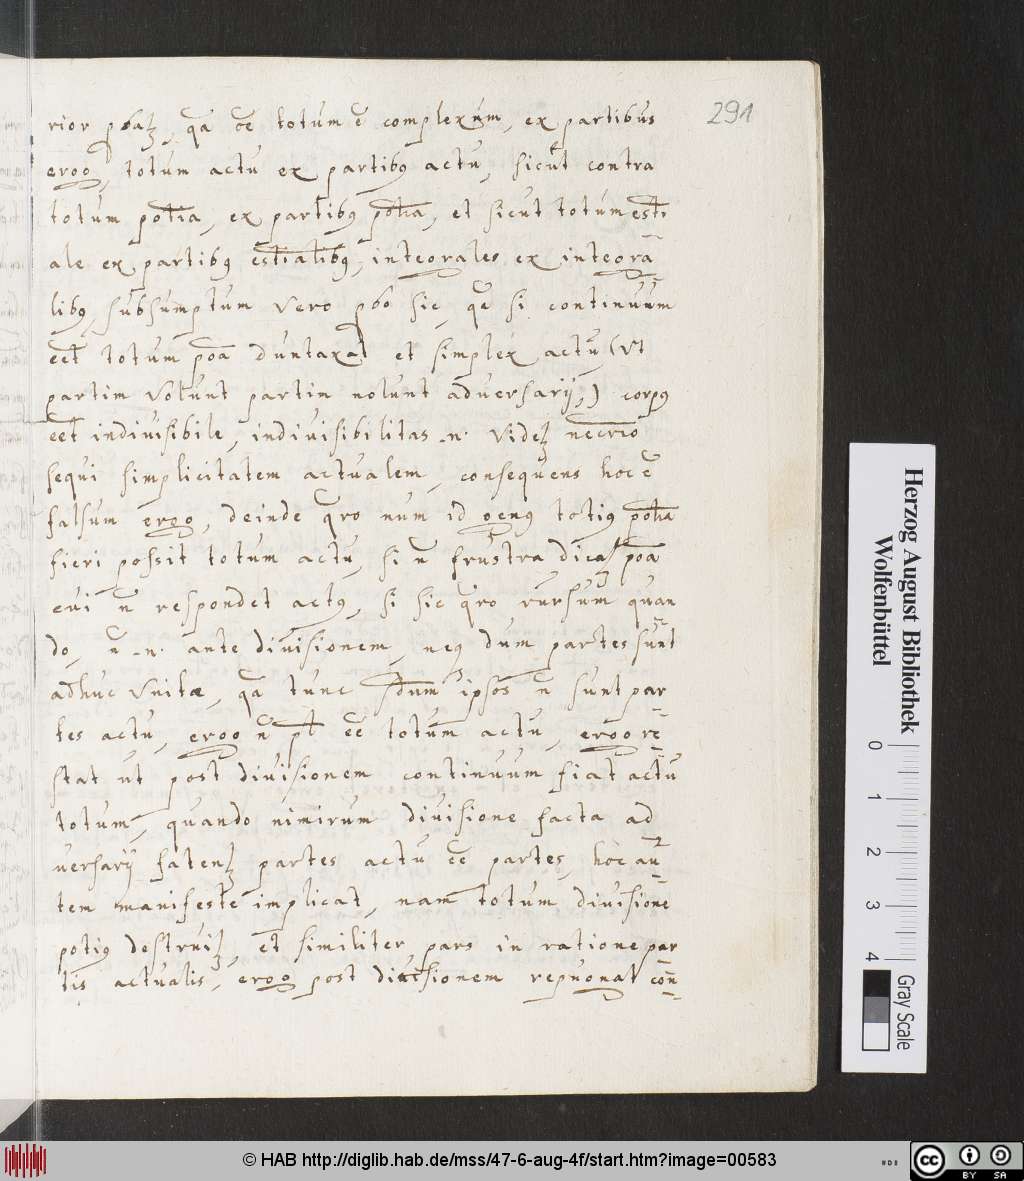 291
rior pbatȝ, qa oē totum ē complexum, ex partibus
ergo, totum actu ex partibꝰ actu, sicut contra
totum potīa, ex partibꝰ potīa, et sicut totum essēti
ale ex partibꝰ essētialibꝰ, integrales ex integra
libꝰ, subsumptum vero pbo sic, qa si continuum
eēt totum poā duntaxat et simplex actu, (vt
partim volunt partim nolunt aduersarij,) corpꝰ
eēt indiuisibile, indiuisibilitas .n. videtȝ necrio
sequi simplicitatem actualem, consequens hoc ē
falsum ergo, deinde qro num id genꝰ totiꝰ potīa
fieri possit totum actu, si n̄ frustra dicat poā
cui n̄ respondet actꝰ, si sic qro rursum quan
do, n̄ .n. ante diuisionem, neqꝫ dum partes sunt
adhuc vnitæ, qa tunc sdum ipsos n̄ sunt par
tes actu, ergo n̄ pt eē totum actu, ergo re
stat ut post diuisionem continuum fiat actu
totum, quando nimirum diuisione facta ad
uersarij fatentȝ partes actu eē partes, hoc au
tem manifeste implicat, nam totum diuisione
potiꝰ destruitȝ, et similiter pars in ratione par
tis actualis, ergo post diuisionem repugnat con
Herzog August Bibliothek
Wolfenbüttel
0 1 2 3 4
Gray Scale
© HAB http://diglib.hab.de/mss/47-6-aug-4f/start.htm?image=00583
cc BY SA